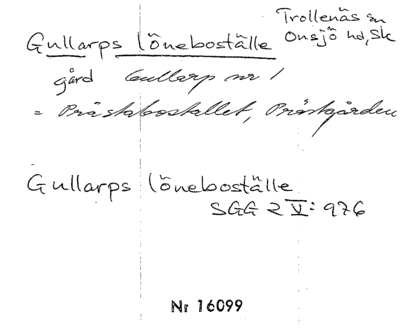 Trollenäs sn
Onsjö hd, Sk
Gullarps löneboställe
gård Gullarp nr 1
= Prästabostället, Prästgården
Gullarps löneboställe
SGG 2 V: 976
Nr 16099